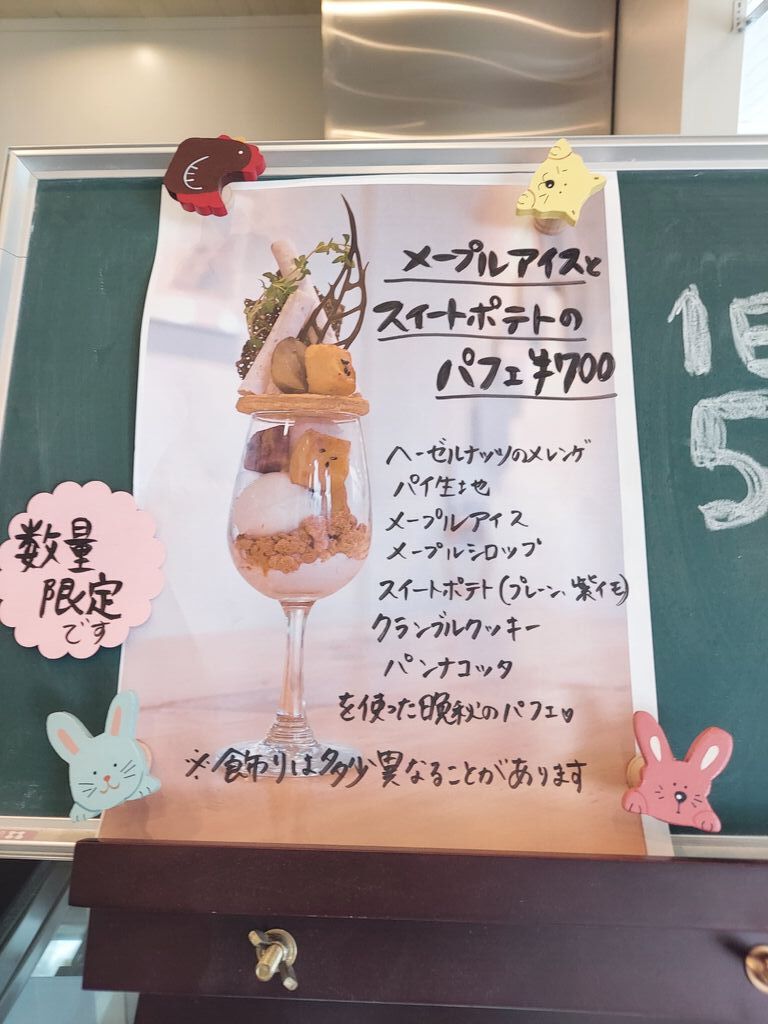 メープルアイスと
スイートポテトの
パフェ ¥700
ヘーゼルナッツのメレンゲ
パイ生地
メープルアイス
メープルシロップ
スイートポテト(プレーン、紫イモ)
クランブルクッキー
パンナコッタ
を使った晩秋のパフェ♥
※飾りは多少異なることがあります
数量
限定
です
1日
5